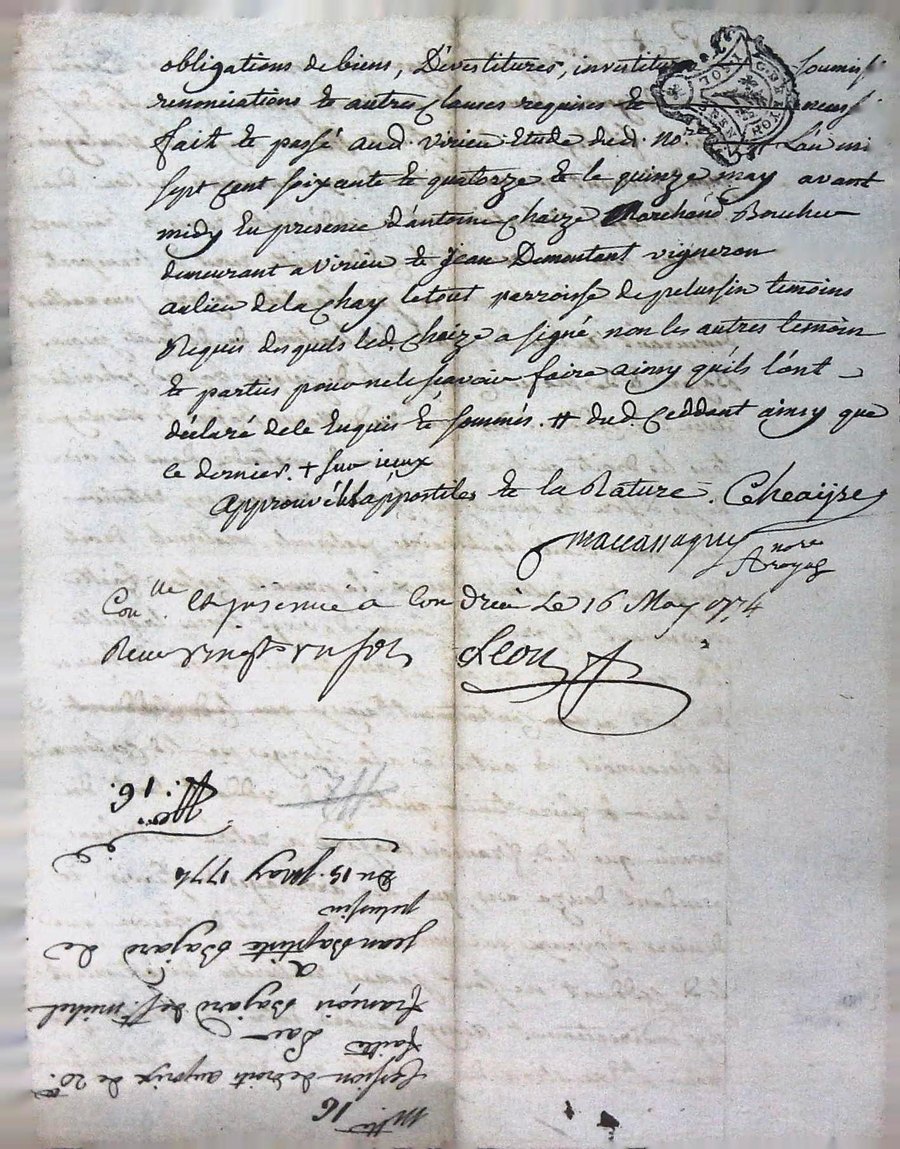 obligations de biens, Devestitures, investitur soumiss
renonciations & autres clauses requises &
fait & passé aud. virieu Etude dud. no.re L'an mi
sept cent soixante & quatorze & le quinze may avant
midy En presence d'antoine chaize Marchand Boucher
demeurant a virieu & Jean Dumontant vigneron
au lieu de la chay le tout parroisse de pelussin temoins
Requis desquels led. chaize a signé non les autres temoin
& parties pour ne le sçavoir faire ainsy qu'ils l'ont
declaré de ce Enquis & sommés. # dud. Ceddant ainsy que
ce dernier. + sur iceux
approuvé les appostiles & la Rature. Cheaize
maccassaguy nore
Royal
Con.lle Et présenté à Condrieu Le 16 May 1774
Receu vingt un sols Leon
m.tte 16
Cession de droits au prix de 20
faitte Par
françois Bajard de St. michel
a
Jean Baptiste Bajard de
pelussin
Du 15. may 1774
16.